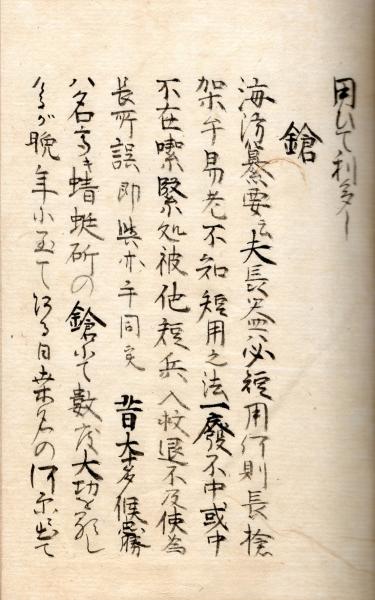 用ひて利多し
鎗
海防纂要云夫長器必短用何則長槍
架手易老不知短用之法一發不中或中
不在喫緊処被他短兵入救退不及便為
長所誤即與赤手同矣 昔大多候忠勝
ハ名高き蜻蜓斫の鎗にて数度大功を顕し
が晩年に至て或る日桑名の河原に出て